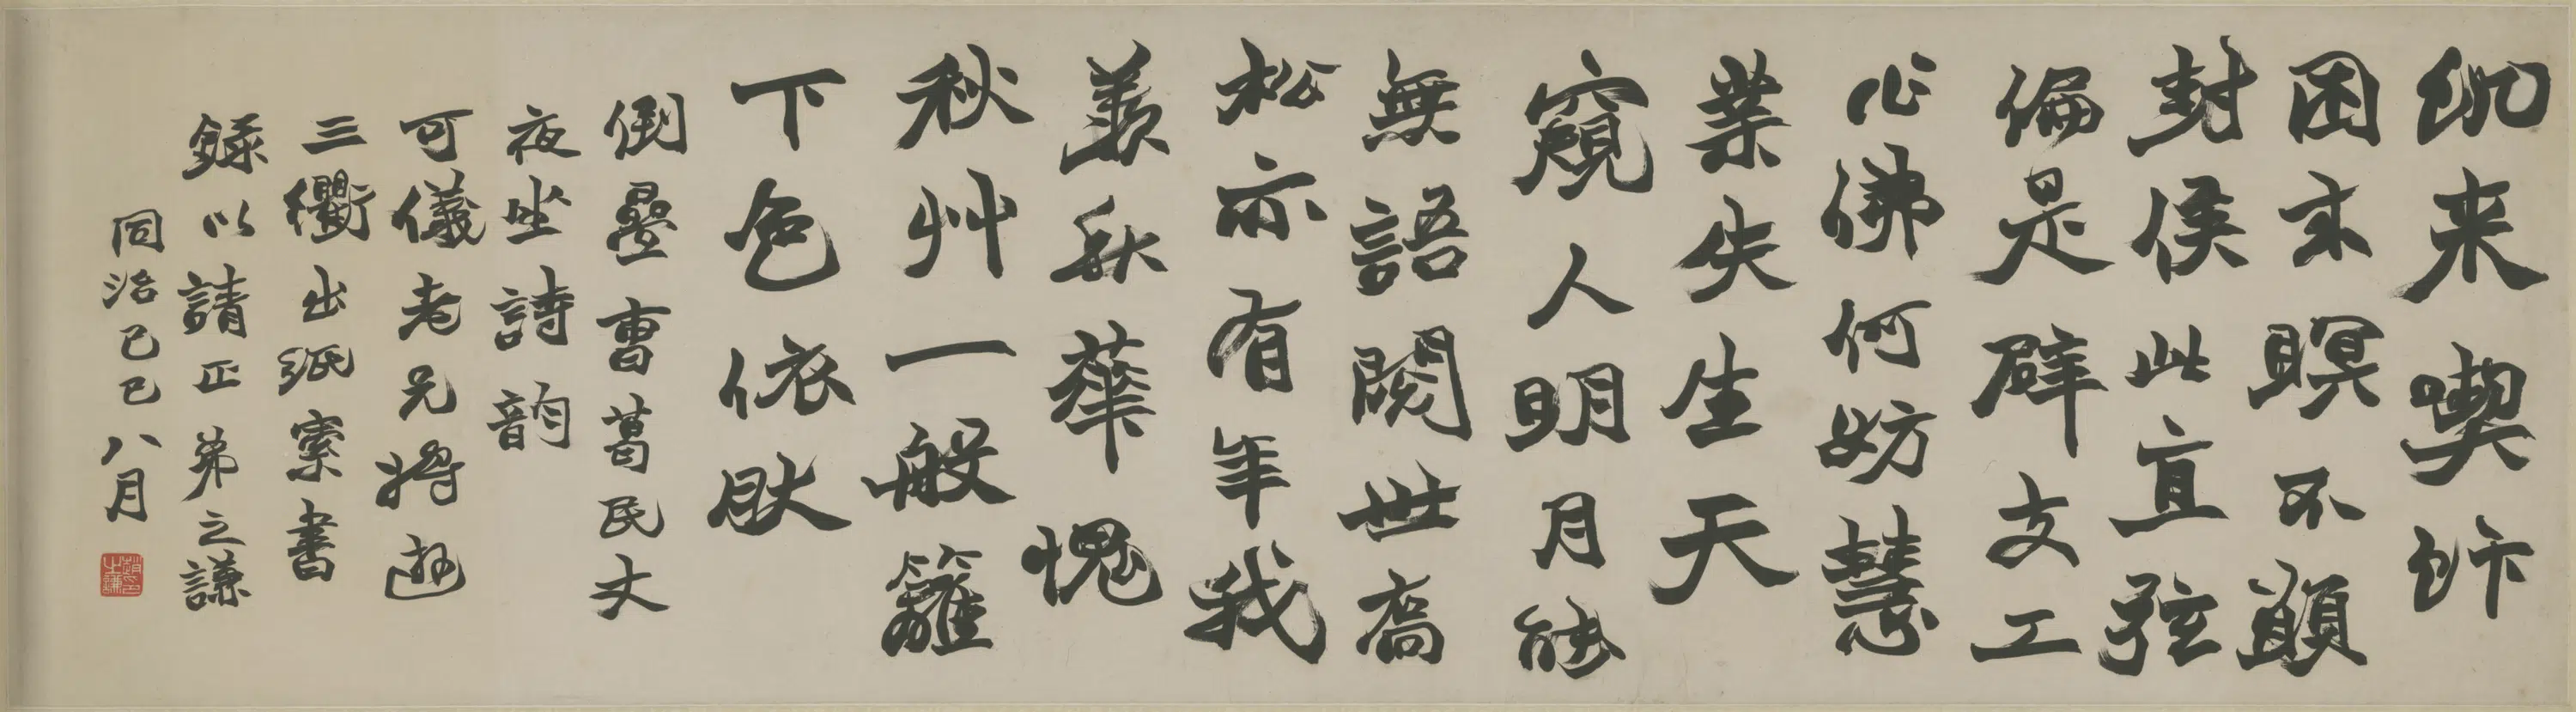 飢来喫飰
困来瞑不願
封侯此直弦
偏是辟支工
作佛何妨慧
業失生天
窺人明月能
無語閱世喬
松亦有年我
羨秋華愧
秋艸一般籬
下色依肰
倒疊曹葛民丈
夜坐詩韵
可儀老兄將遊
三衢出紙索書
錄以請正弟之謙
同治己巳八月
趙之謙印